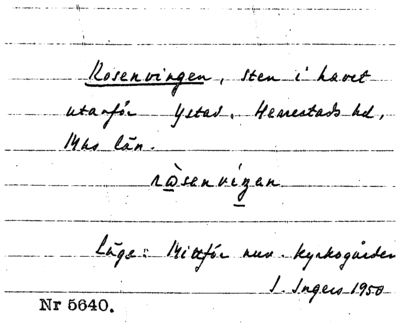 Rosenvingen, sten i havet
utanför Ystad. Herrestads hd,
Mhs län.
ròsenvíŋen
Läge: Mittför nuv. kyrkogården
I. Ingers 1950
Nr 5640.